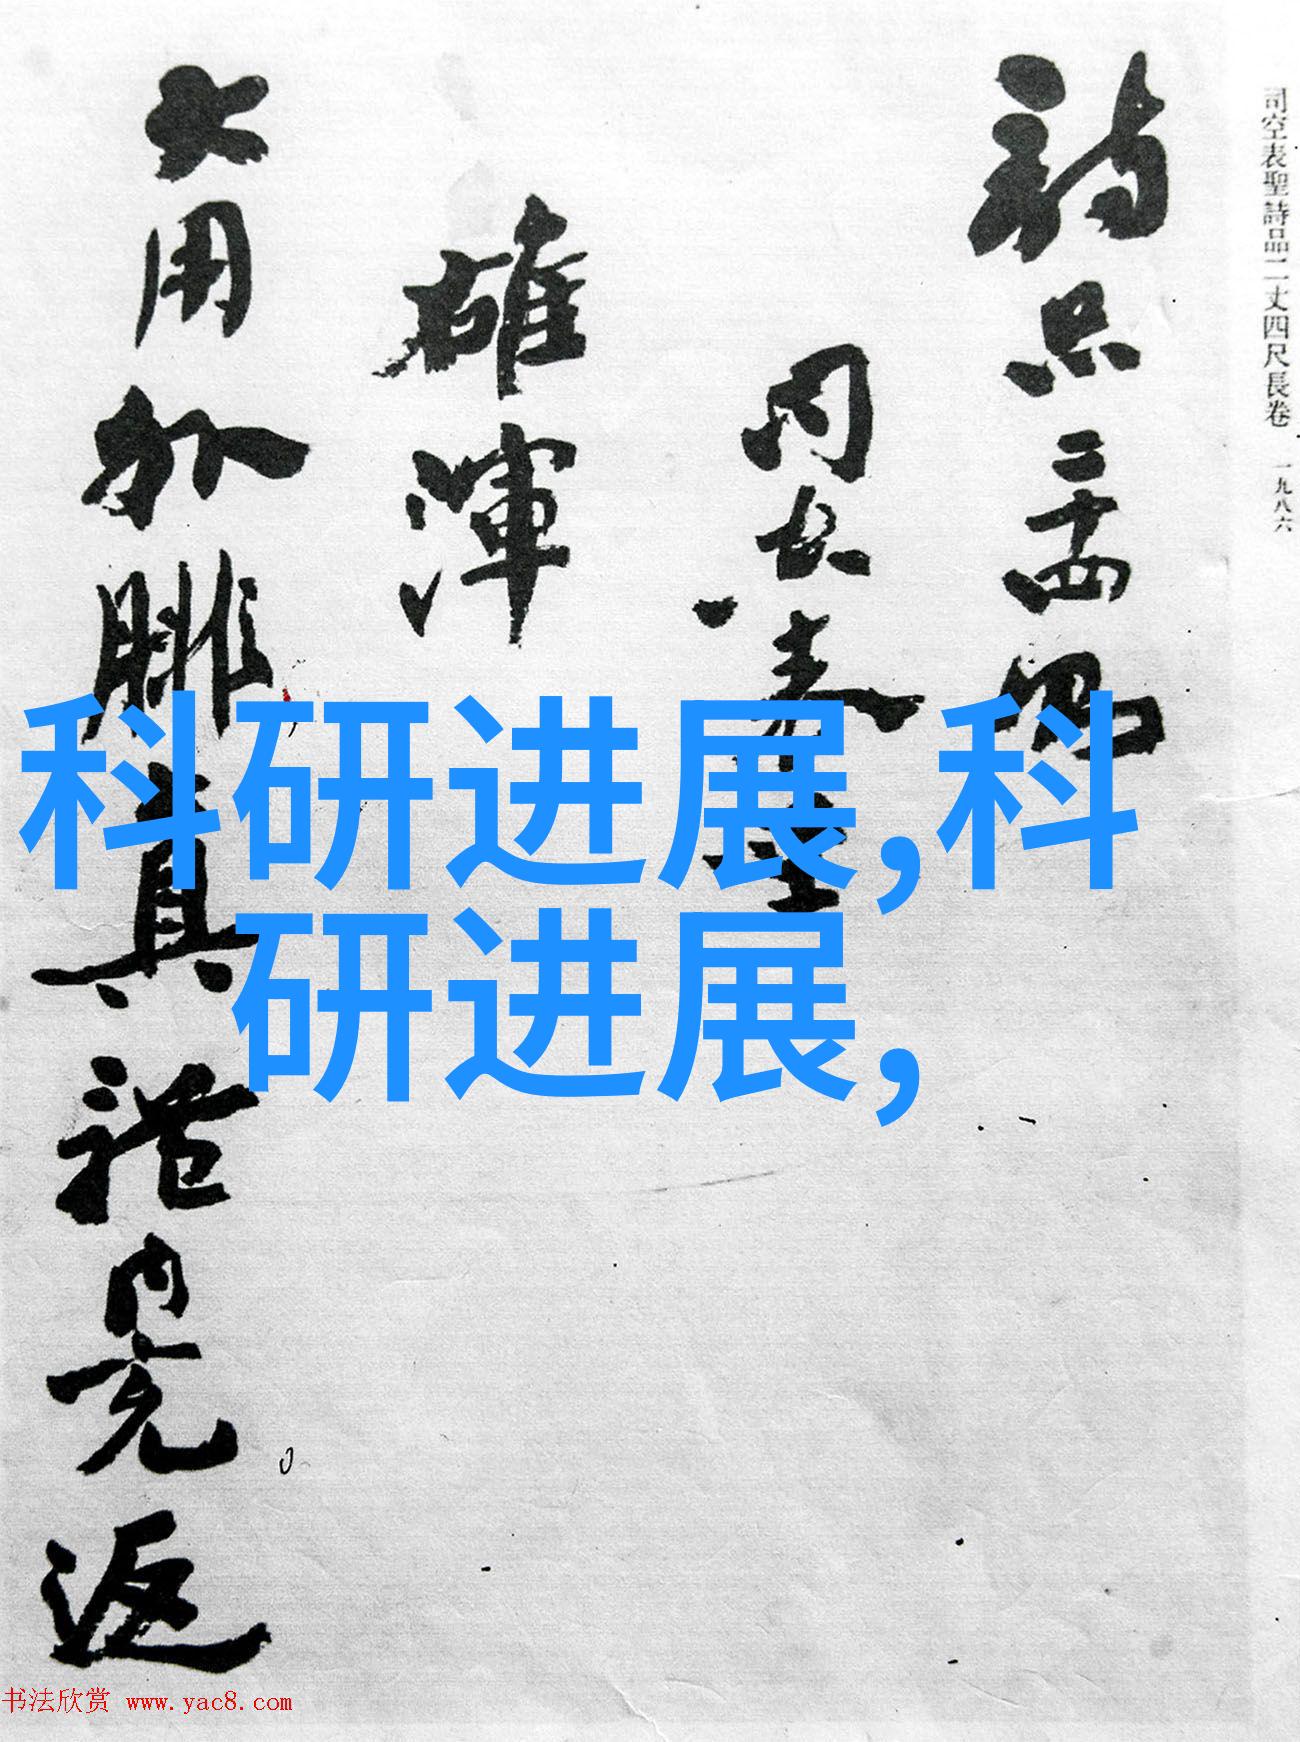 司空表聖詩品二丈四尺長卷 一九八六
詩品二十四則
司空表聖
雄渾
大用外腓真體內充返
科研进展,科
研进展,
书法欣赏 www.yac8.com